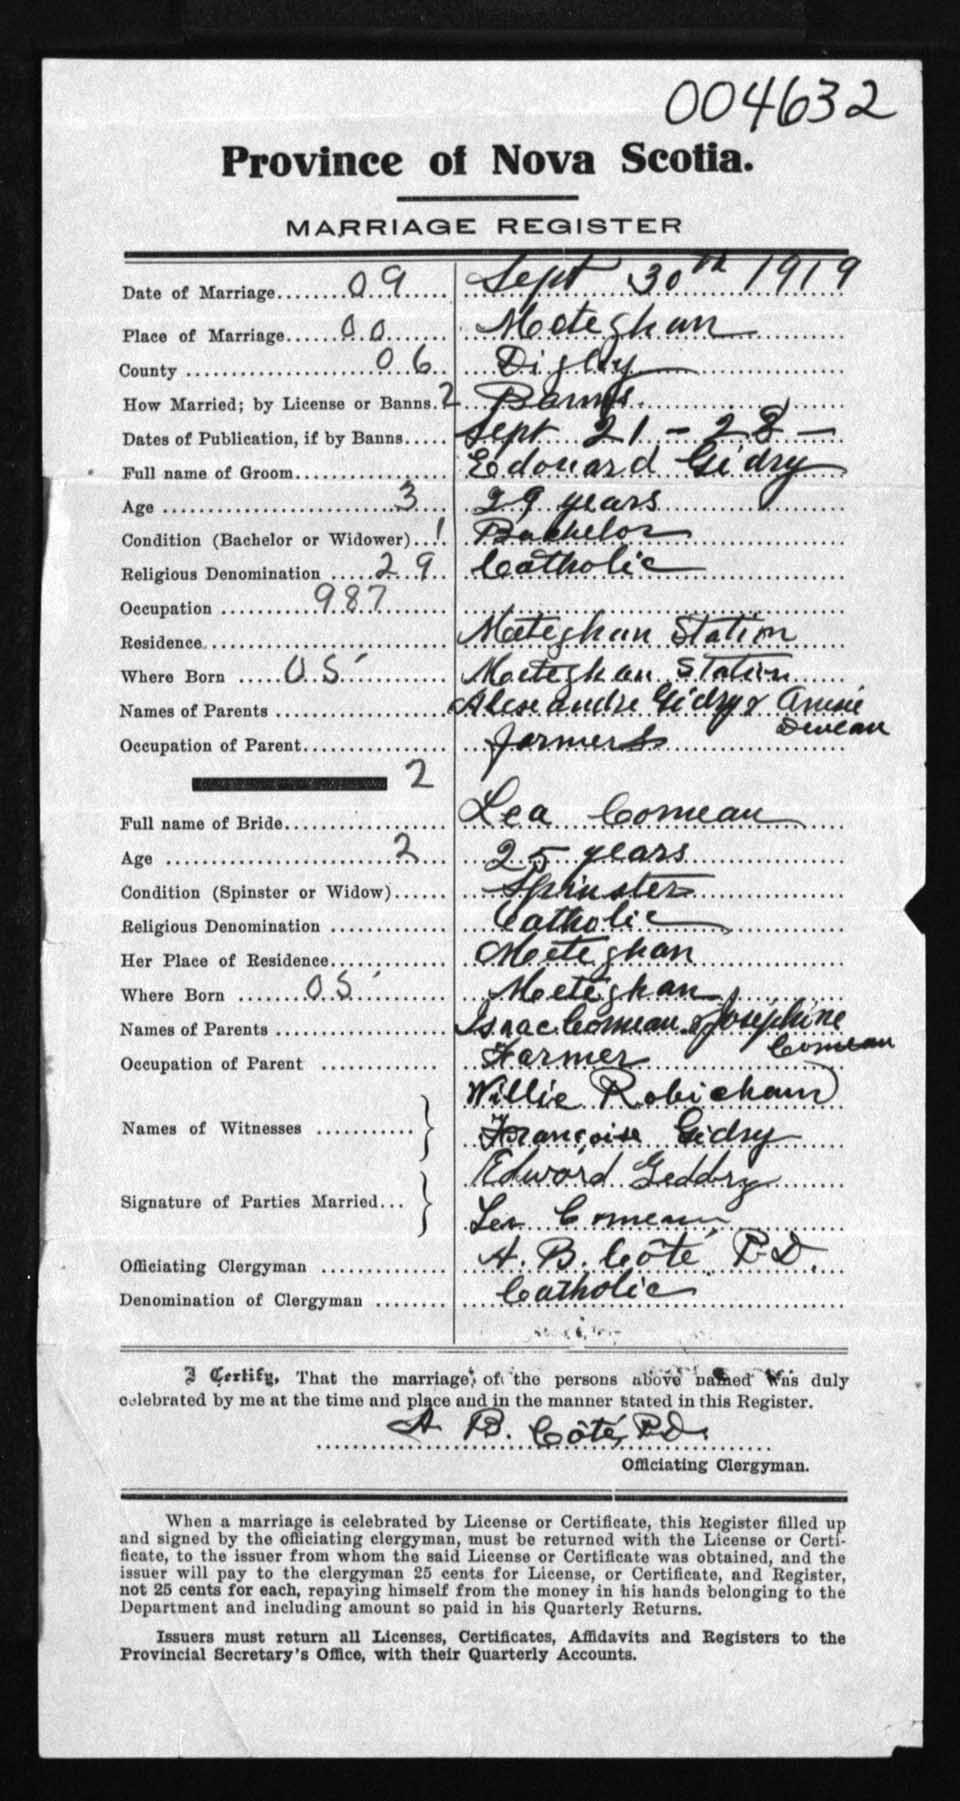 004632
Province of Nova Scotia.
MARRIAGE REGISTER
Date of Marriage........09..... Sept 30th 1919
Place of Marriage.....00...... Meteghan
County ..................06.. Digby
How Married; by License or Banns.2 Banns.
Dates of Publication, if by Banns..... Sept 21 - 28 -
Full name of Groom................. Edouard Gidry
Age ..........................3... 29 years
Condition (Bachelor or Widower)...1. Bachelor
Religious Denomination .....29.. Catholic
Occupation ..........987.......
Residence........................... Meteghan Station
Where Born .....05........... Meteghan Station
Names of Parents .................. Alexandre Gidry & Annie
Deveau
Occupation of Parent............... farmers
2
Full name of Bride.................. Lea Comeau
Age .........................2... 25 years
Condition (Spinster or Widow)...... Spinster
Religious Denomination ............ Catholic
Her Place of Residence............. Meteghan
Where Born .......05......... Meteghan
Names of Parents .................. Isaac Comeau & Josephine
Comeau
Occupation of Parent ............. Farmer
Willie Robichaud
Names of Witnesses ...........
Françoise Gidry
Edward Geddry
Signature of Parties Married...
Lea Comeau
Officiating Clergyman ............. A. B. Côté, P.D.
Denomination of Clergyman ........ Catholic
I Certify, That the marriage, of the persons above named was duly
celebrated by me at the time and place and in the manner stated in this Register.
A B. Côté, P.D.
Officiating Clergyman.
When a marriage is celebrated by License or Certificate, this Register filled up
and signed by the officiating clergyman, must be returned with the License or Certi-
ficate, to the issuer from whom the said License or Certificate was obtained, and the
issuer will pay to the clergyman 25 cents for License, or Certificate, and Register,
not 25 cents for each, repaying himself from the money in his hands belonging to the
Department and including amount so paid in his Quarterly Returns.
Issuers must return all Licenses, Certificates, Affidavits and Registers to the
Provincial Secretary's Office, with their Quarterly Accounts.